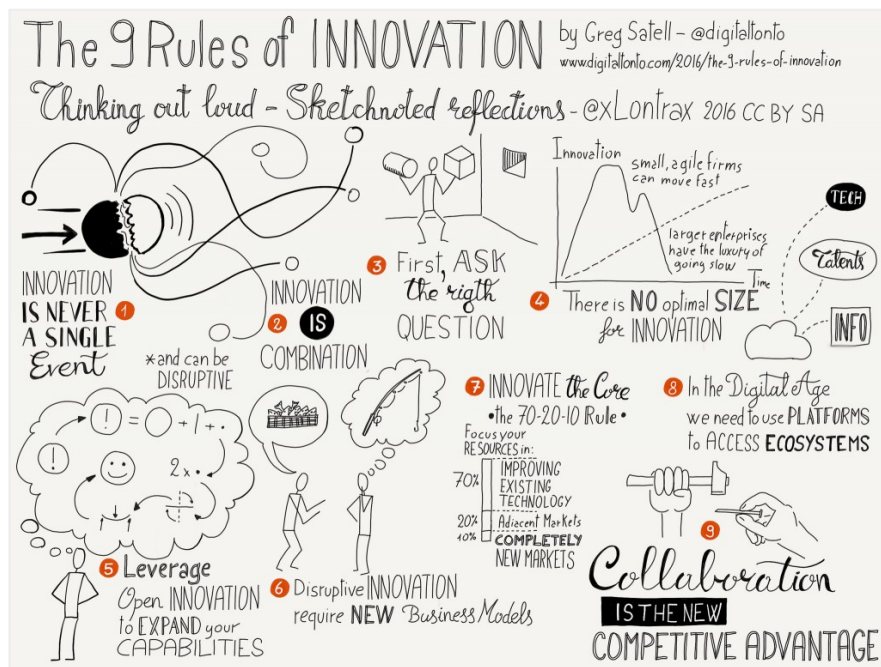 The 9 Rules of INNOVATION
by Greg Satell - @digitaltonto
www.digitaltonto.com/2016/the-9-rules-of-innovation
Thinking out loud - Sketchnoted reflections - @xLontrax 2016 CC BY SA
INNOVATION
IS NEVER
A SINGLE
Event
1
*and can be
DISRUPTIVE
INNOVATION
2 IS
COMBINATION
3 First, ASK
the rigth
QUESTION
Innovation
small, agile firms
can move fast
larger enterprises
have the luxury of
going slow
Time
4 There is NO optimal SIZE
for INNOVATION
TECH
Talents
INFO
! = + 1 + •
!
2x•
5 Leverage
Open INNOVATION
to EXPAND your
CAPABILITIES
6 Disruptive INNOVATION
require NEW Business Models
7 INNOVATE the Core
• the 70-20-10 Rule •
Focus your
RESOURCES in:
70% IMPROVING
EXISTING
TECHNOLOGY
20% Adiacent Markets
10% COMPLETELY
NEW MARKETS
8 In the Digital Age
we need to use PLATFORMS
to ACCESS ECOSYSTEMS
9
Collaboration
IS THE NEW
COMPETITIVE ADVANTAGE